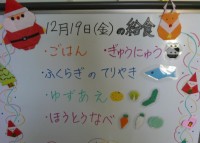 12月19日(金)の給食
・ごはん ・ぎゅうにゅう
・ふくらぎのてりやき
・ゆずあえ
・ほうとうなべ